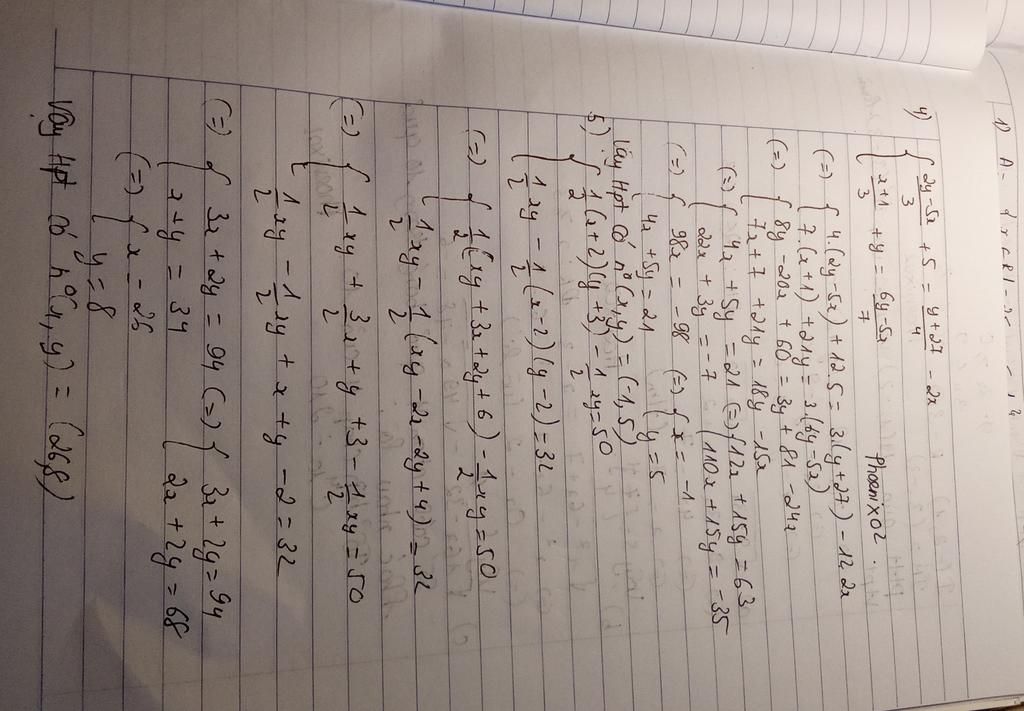 1) A =
4) { (2y-5x)/3 + 5 = (y+27)/4 - 2x
{ (x+1)/3 + y = (6y-5x)/7 Phoenix02.
(=) { 4.(2y-5x) + 12.5 = 3.(y+27) - 12.2x
{ 7.(x+1) + 21y = 3.(6y-5x)
(=) { 8y - 20x + 60 = 3y + 81 - 24x
{ 7x + 7 + 21y = 18y - 15x
(=) { 4x + 5y = 21 (=) { 12x + 15y = 63
{ 22x + 3y = -7 { 110x + 15y = -35
(=) { 98x = -98 (=) { x = -1
{ 4x + 5y = 21 { y = 5
Vậy Hpt có n° (x,y) = (-1,5)
5) { 1/2 (x+2)(y+3) - 1/2 xy = 50
{ 1/2 xy - 1/2 (x-2)(y-2) = 32
(=) { 1/2 (xy + 3x + 2y + 6) - 1/2 xy = 50
{ 1/2 xy - 1/2 (xy - 2x - 2y + 4) = 32
(=) { 1/2 xy + 3/2 x + y + 3 - 1/2 xy = 50
{ 1/2 xy - 1/2 xy + x + y - 2 = 32
(=) { 3x + 2y = 94 (=) { 3x + 2y = 94
{ x + y = 34 { 2x + 2y = 68
(=) { x = 26
{ y = 8
Vậy Hpt có n° (x,y) = (26,8)